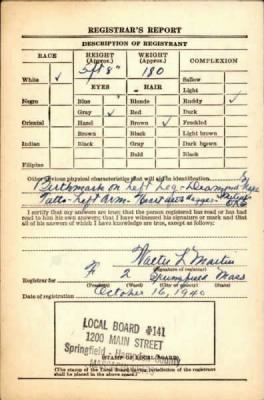 REGISTRAR'S REPORT
DESCRIPTION OF REGISTRANT
RACE
HEIGHT
(Approx.)
WEIGHT
(Approx.)
COMPLEXION
5 ft 8"
180
White ✓
Sallow
Light
EYES
HAIR
Negro
Blue
Blonde
Ruddy ✓
Gray ✓
Red
Dark
Oriental
Hazel
Brown ✓
Freckled
Brown
Black
Light brown
Indian
Black
Gray
Dark brown
Bald
Black
Filipino
Other obvious physical characteristics that will aid in identification
Birthmark on Left Leg - Diamond
Left Arm - Heart
I certify that my answers are true; that the person registered has read or has had
read to him his own answers; that I have witnessed his signature or mark and that
all of his answers of which I have knowledge are true, except as follows:
Walter L Martin
(Signature of registrar)
Registrar for
2
Springfield
Mass
(Precinct)
(Ward)
(City or county)
(State)
Date of registration
October 16, 1940
LOCAL BOARD #141
1200 MAIN STREET
Springfield - County
(STAMP OF LOCAL BOARD)
(The stamp of the Local Board having jurisdiction of the registrant
shall be placed in the above space.)